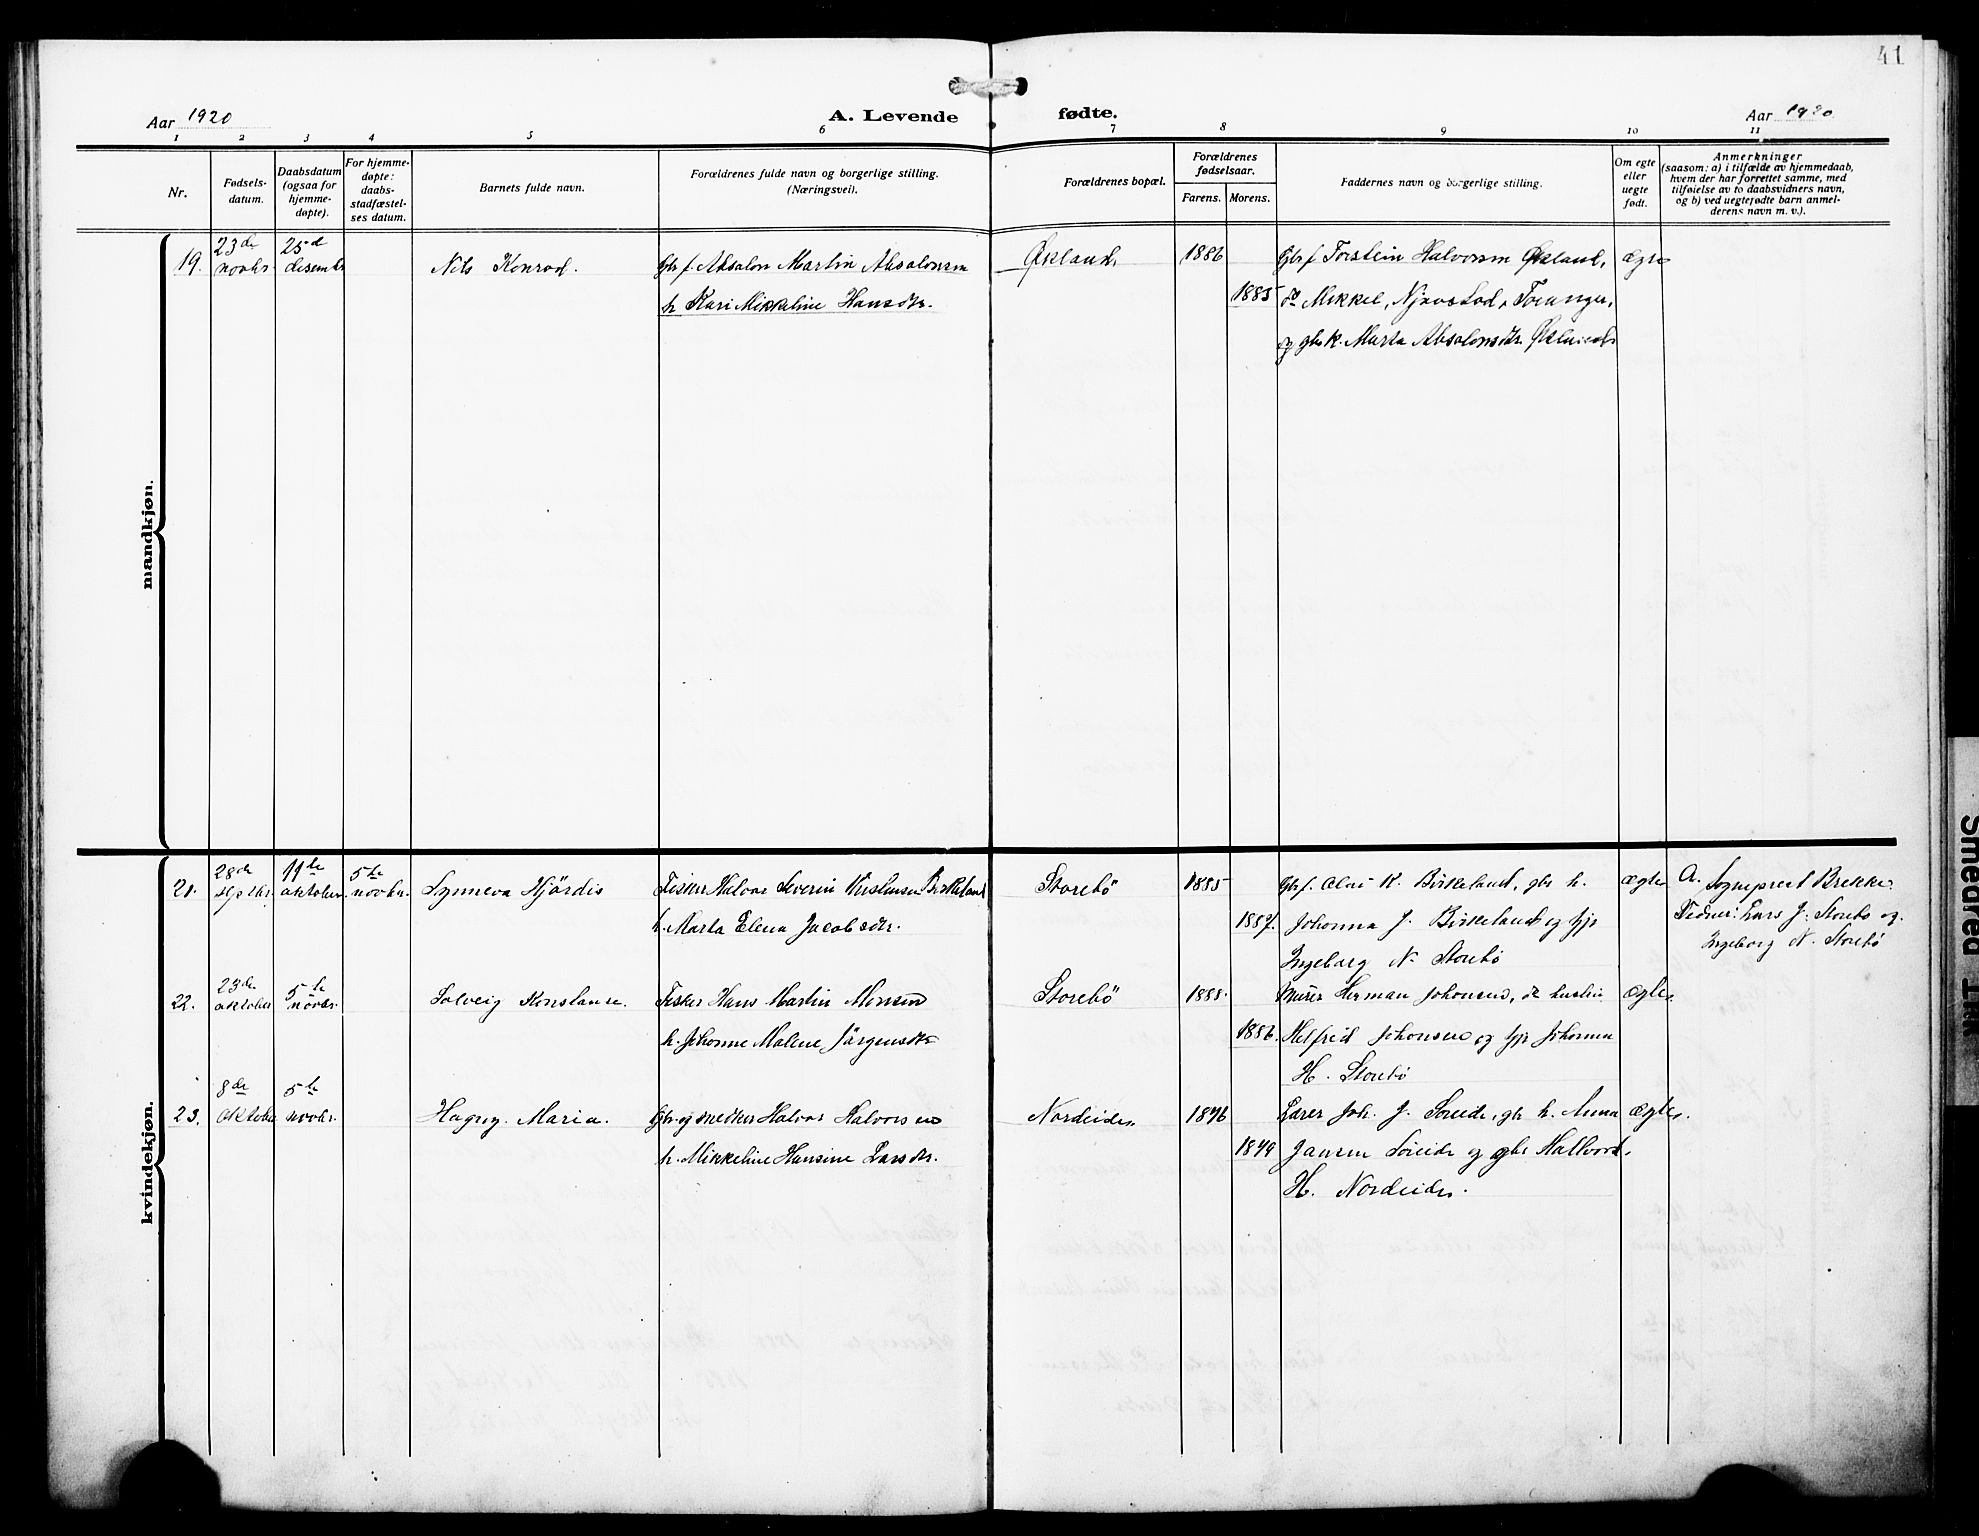 41
Aar 1920
A. Levende fødte.
Aar 1920
1 2 3 4 5 6 7 8 9 10 11
Nr.
Fødsels-
datum.
Daabsdatum
(ogsaa for
hjemme-
døpte).
For hjemme-
døpte:
daabs-
stadfæstel-
ses datum.
Barnets fulde navn.
Forældrenes fulde navn og borgerlige stilling.
(Næringsvei).
Forældrenes bopæl.
Forældrenes
fødselsaar.
Farens. Morens.
Faddernes navn og borgerlige stilling.
Om egte
eller
uegte
født.
Anmerkninger
(saasom: a) i tilfælde av hjemmedaab,
hvem der har forrettet samme, med
tilføielse av to daabsvidners navn,
og b) ved uegtefødte barn anmel-
derens navn m. v.).
mandkjøn.
19.
23de
novbr
25d
desembr
Nils Konrad.
Gbr f. Absalon Martin Absalonsen
h. Kari Mikkeline Hansdtr.
Økland.
1886
1885
Gbr f Torstein Halvorsen Økland,
do Mikkel, Njaos Lod, Toranger,
og gbr k. Marta Absalonsdtr. Økland
Ægte
kvindekjøn.
21.
28de
septbr.
11te
oktober
5te
novbr.
Synneva Hjördis
Fisker Halvor Severin Kristensen Birkeland
h. Marta Elena Jacobsdtr.
Storebö
1885
1887.
Gbr f. Olai K. Birkeland, gbr h.
Johanna J. Birkeland og pge
Ingeborg N. Storebö
Ægte
A. Sogneprest Brekke.
Vidner: Lars J. Storebö og
Ingeborg N. Storebö
22.
23de
oktober
5te
novbr
Solveig Konstanse.
Fisker Hans Martin Monsen
h. Johanne Malene Jörgensdtr
Storebö
1888.
1886.
Murer Herman Johansen, do hustru
Helfrid Johansen og pge Johanna
H. Storebö
Ægte.
23.
8de
Oktober
5te
novbr.
Hagny Maria.
Gbr. og snedker Halvor Halvorsen
h. Mikkeline Hansine Larsdtr.
Nordeide
1876
1879
Lærer Joh. J. Söreide, gbr h. Anna
Jansen Söreide og gbr Hallvard
H. Nordeide.
Ægte.
Smeared Ink